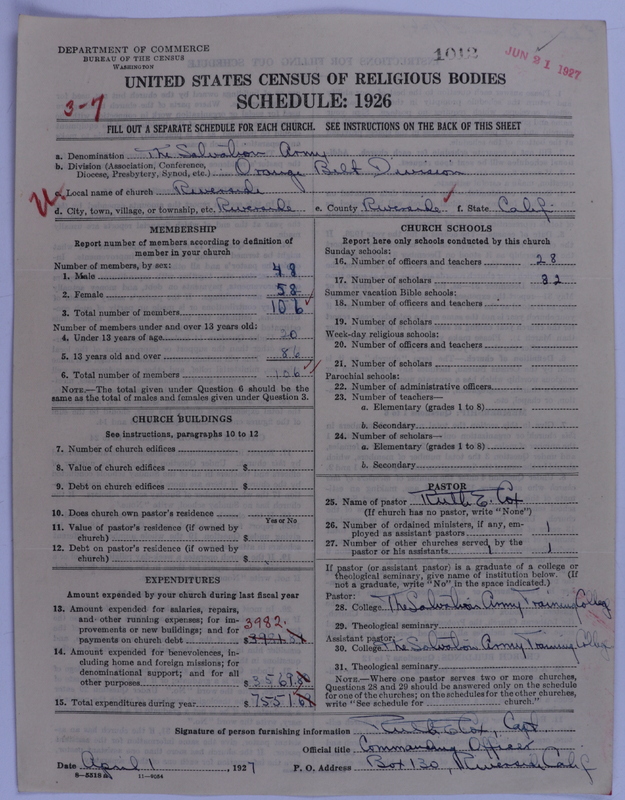 DEPARTMENT OF COMMERCE
BUREAU OF THE CENSUS
WASHINGTON
1012
JUN 21 1927
UNITED STATES CENSUS OF RELIGIOUS BODIES
3-7
SCHEDULE: 1926
FILL OUT A SEPARATE SCHEDULE FOR EACH CHURCH. SEE INSTRUCTIONS ON THE BACK OF THIS SHEET
a. Denomination The Salvation Army
b. Division (Association, Conference, Diocese, Presbytery, Synod, etc.) Orange Belt Division
c. Local name of church Riverside
d. City, town, village, or township, etc. Riverside e. County Riverside f. State Calif.
MEMBERSHIP
Report number of members according to definition of
member in your church
Number of members, by sex:
1. Male 48
2. Female 58
3. Total number of members 106
Number of members under and over 13 years old:
4. Under 13 years of age 20
5. 13 years old and over 86
6. Total number of members 106
NOTE.—The total given under Question 6 should be the
same as the total of males and females given under Question 3.
CHURCH BUILDINGS
See instructions, paragraphs 10 to 12
7. Number of church edifices
8. Value of church edifices $
9. Debt on church edifices $
10. Does church own pastor's residence
Yes or No
11. Value of pastor's residence (if owned by
church) $
12. Debt on pastor's residence (if owned by
church) $
EXPENDITURES
Amount expended by your church during last fiscal year
13. Amount expended for salaries, repairs,
and other running expenses; for im-
provements or new buildings; and for
payments on church debt $ 3982.
14. Amount expended for benevolences, in-
cluding home and foreign missions; for
denominational support; and for all
other purposes $ 3569.
15. Total expenditures during year $ 7551
CHURCH SCHOOLS
Report here only schools conducted by this church
Sunday schools:
16. Number of officers and teachers 28
17. Number of scholars 82
Summer vacation Bible schools:
18. Number of officers and teachers
19. Number of scholars
Week-day religious schools:
20. Number of officers and teachers
21. Number of scholars
Parochial schools:
22. Number of administrative officers
23. Number of teachers—
a. Elementary (grades 1 to 8)
b. Secondary
24. Number of scholars—
a. Elementary (grades 1 to 8)
b. Secondary
PASTOR
25. Name of pastor Ruth E. Cox
(If church has no pastor, write "None")
26. Number of ordained ministers, if any, em-
ployed as assistant pastors 1
27. Number of other churches served by the
pastor or his assistants 1
If pastor (or assistant pastor) is a graduate of a college or
theological seminary, give name of institution below. (If
not a graduate, write "No" in the space indicated.)
Pastor:
28. College The Salvation Army Training College
29. Theological seminary
Assistant pastor:
30. College The Salvation Army Training College
31. Theological seminary
NOTE.—Where one pastor serves two or more churches,
Questions 28 and 29 should be answered only on the schedule
for one of the churches; on the schedules for the other churches,
write "See schedule for church."
Signature of person furnishing information Ruth E Cox, Capt
Official title Commanding Officer
Date April 1, 1927 P. O. Address Box 130, Riverside, Calif
8-5518a 11-9054